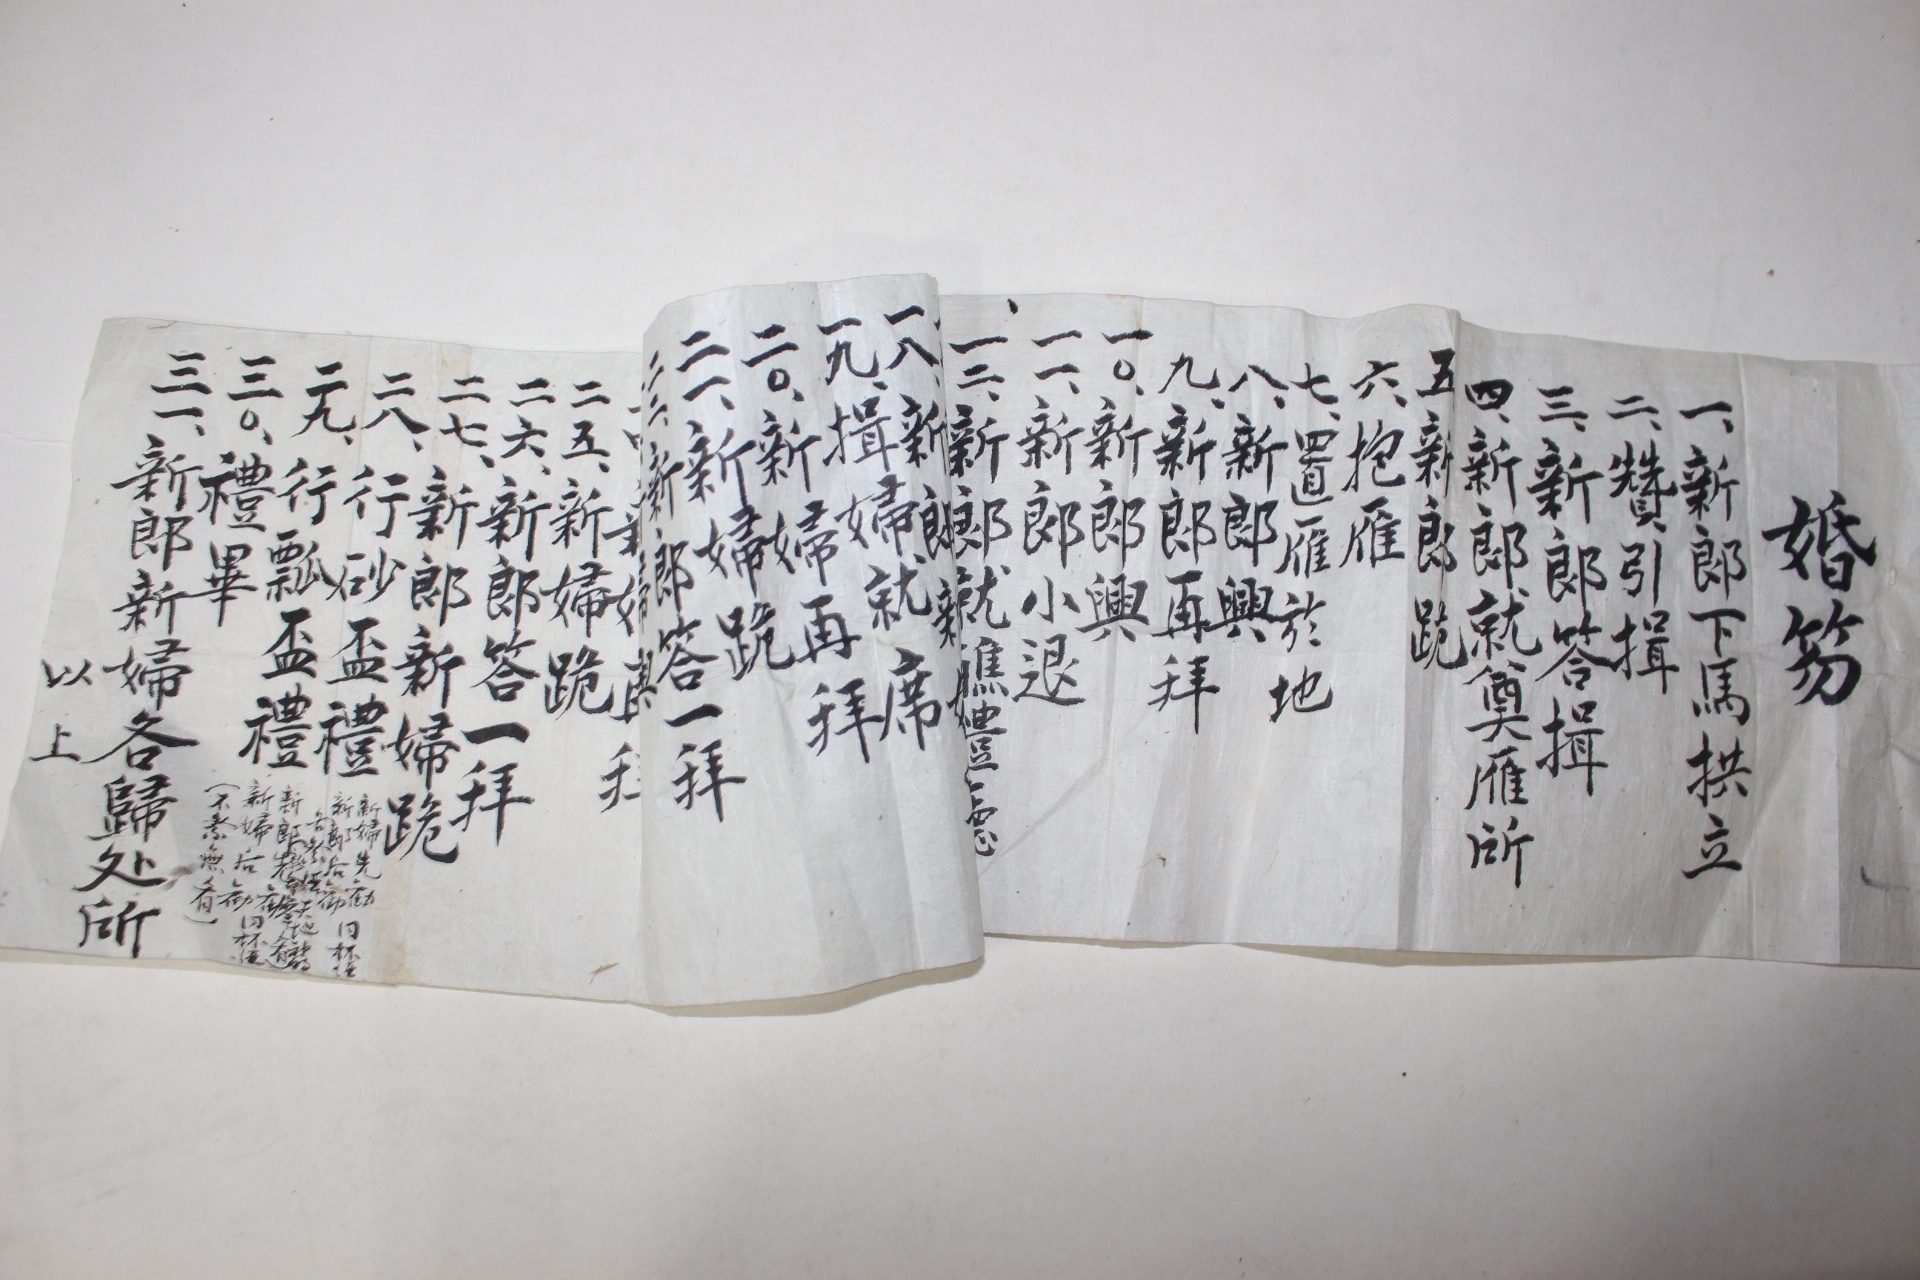 婚笏
一、新郎下馬拱立
二、贊引揖
三、新郎答揖
四、新郎就奠雁所
五、新郎跪
六、抱雁
七、置雁於地
八、新郎興
九、新郎再拜
一〇、新郎興
一一、新郎小退
一二、新郎就醮禮
一八、新郎就席
一九、揖婦
二〇、新婦再拜
二一、新婦跪
新郎答一拜
二五、新婦跪
二六、新郎答一拜
二七、新郎新婦跪
二八、行砂盃禮
新婦先勸
新郎后勸 同杯
二九、行瓢盃禮
新婦后勸 同杯
三〇、禮畢
三一、新郎新婦各歸处所
以上